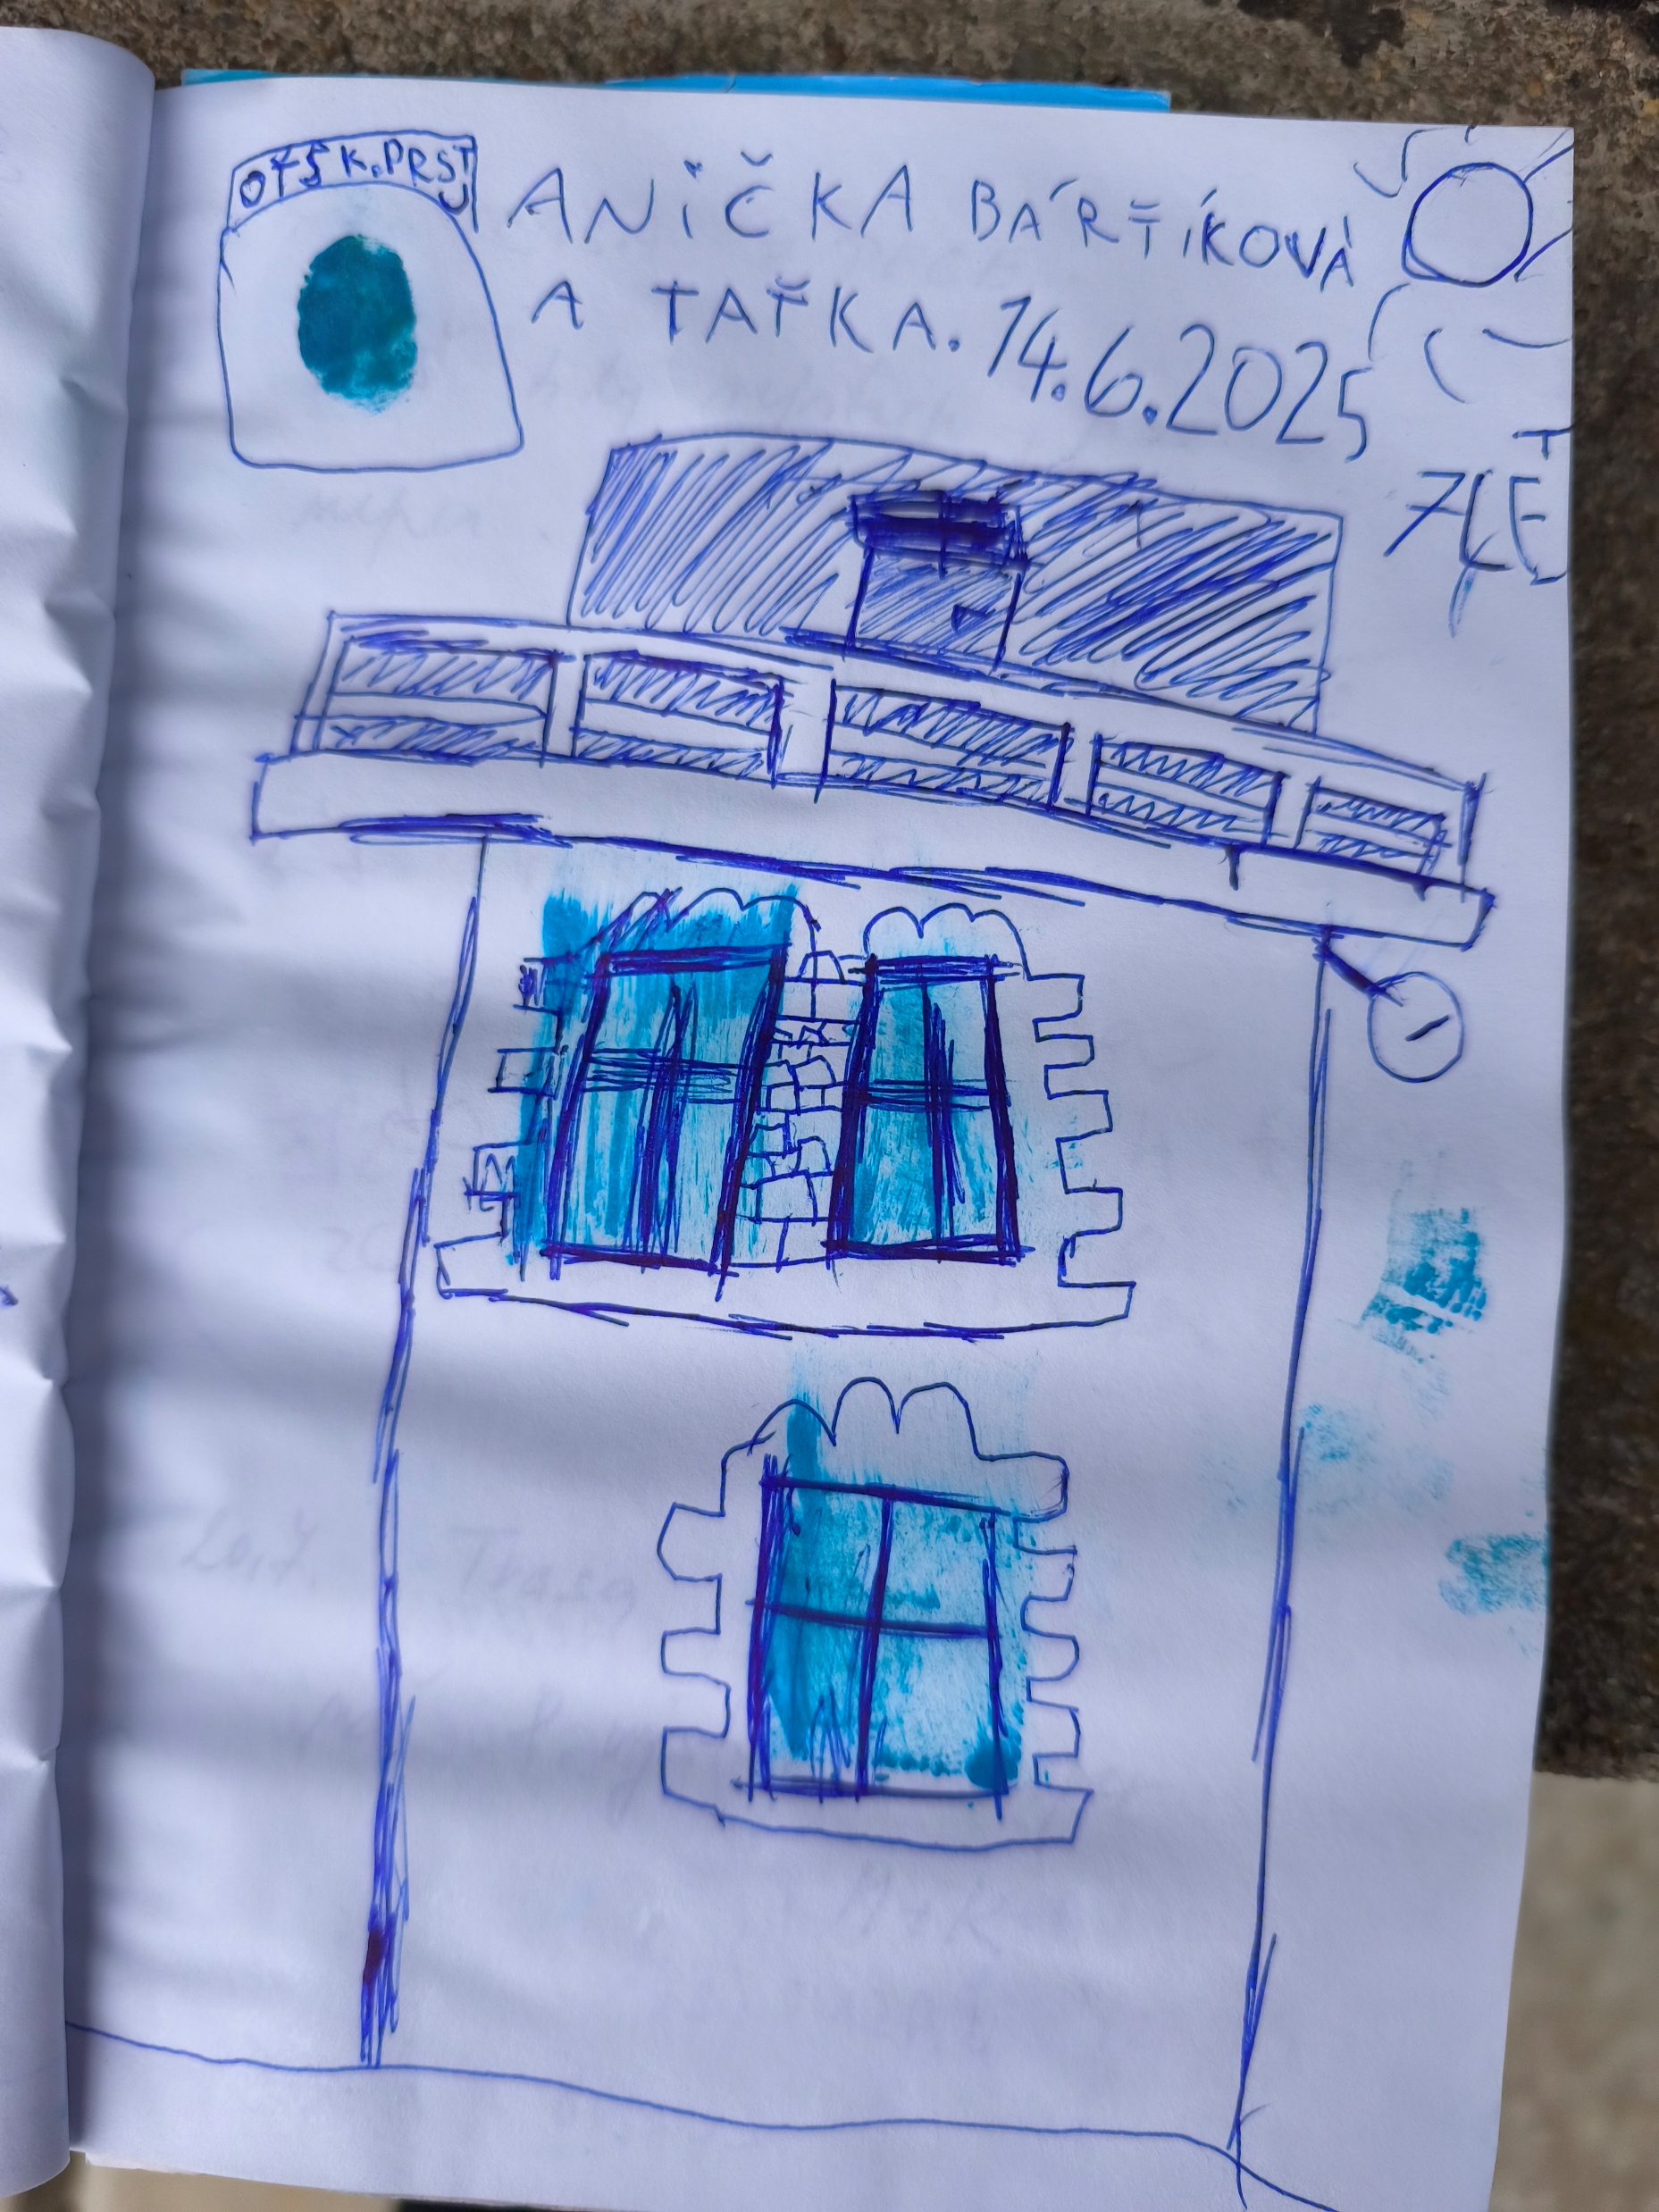 OTISK.PRSTU
ANIČKA BÁRTÍKOVÁ
A TAŤKA. 14.6.2025
7LET